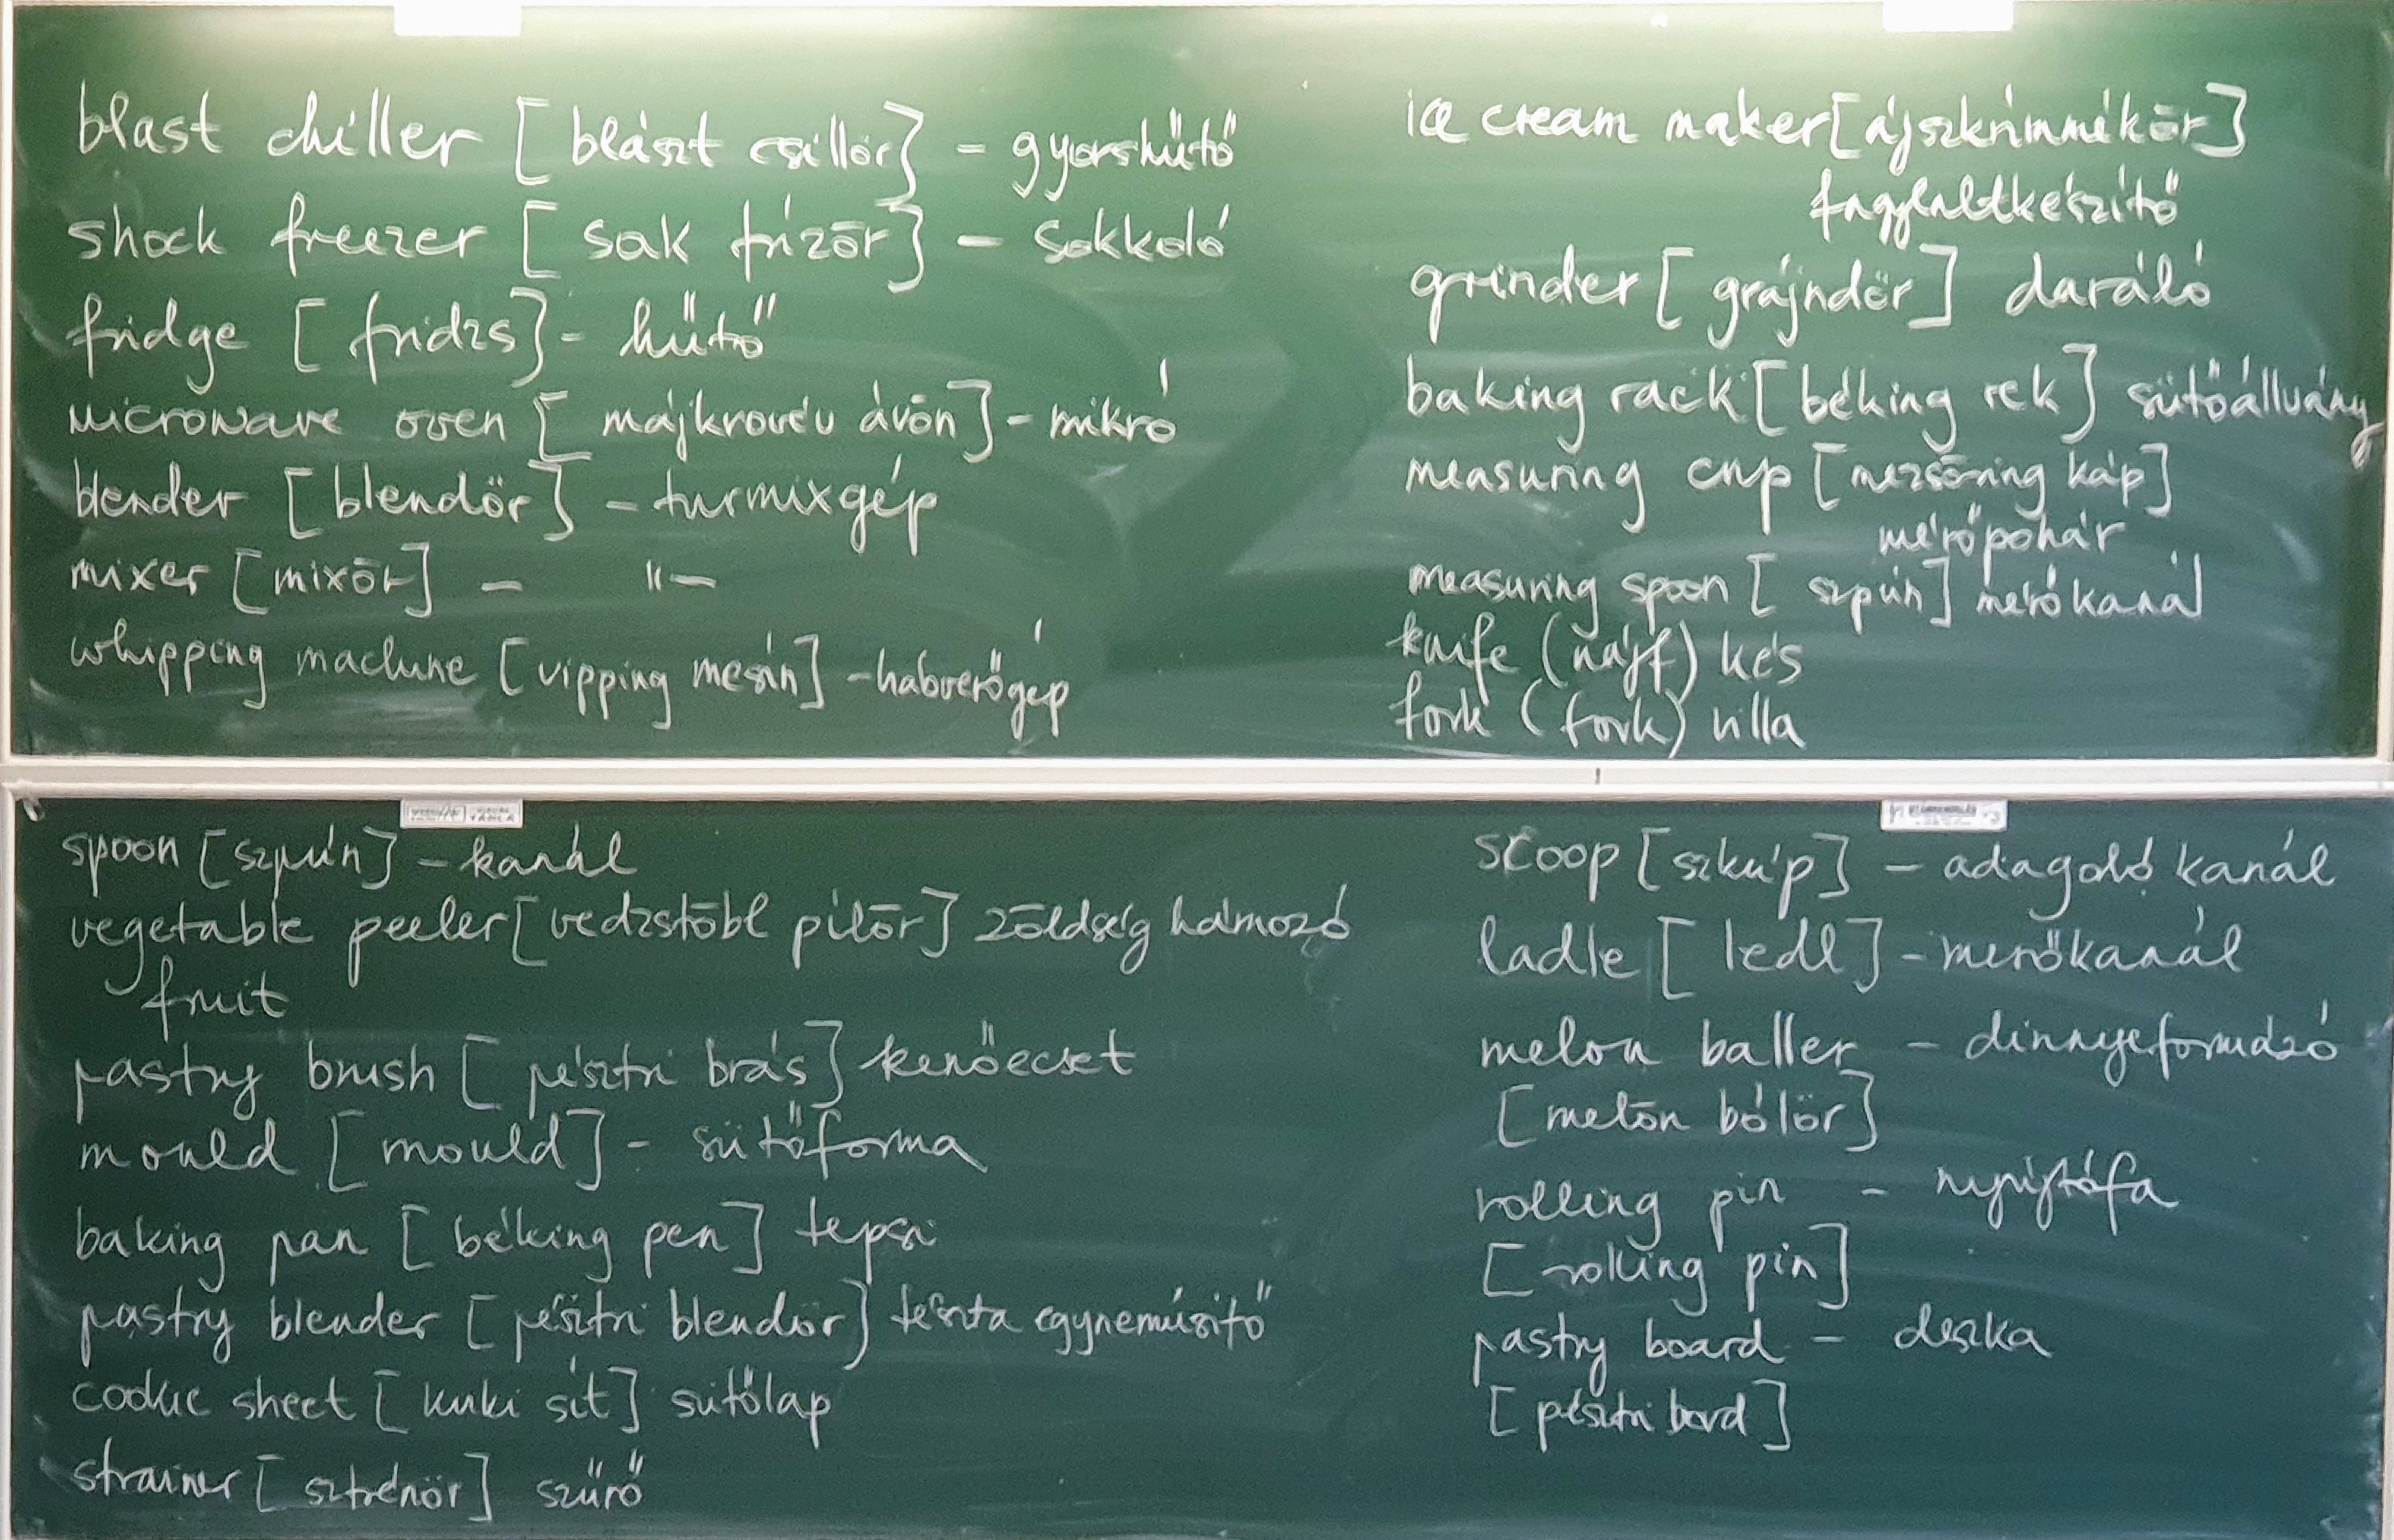 blast chiller [blászt csillör] - gyorshűtő
shock freezer [sak frízör] - sokkoló
fridge [fridzs] - hűtő
microwave oven [májkrovév ávön] - mikró
blender [blendör] - turmixgép
mixer [mixör] - "-
whipping machine [vipping mesín] - habverőgép
ice cream maker [ájszkrímmékör]
fagylaltkészítő
grinder [grájndör] daráló
baking rack [béking rek] sütőállvány
measuring cup [mezsöring káp]
mérőpohár
measuring spoon [szpún] mérőkanál
knife (nájf) kés
fork (fork) villa
spoon [szpún] - kanál
vegetable peeler [vedzstöbl pílör] zöldség hámozó
fruit
pastry brush [pésztri brás] kenőecset
mould [mould] - sütőforma
baking pan [béking pen] tepsi
pastry blender [pésztri blendör] tészta egyneműsítő
cookie sheet [kuki sít] sütőlap
strainer [sztrénör] szűrő
scoop [szkúp] - adagoló kanál
ladle [ledl] - merőkanál
melon baller - dinnyeformázó
[melön bólör]
rolling pin - nyújtófa
[rolling pin]
pastry board - deszka
[pésztri bord]